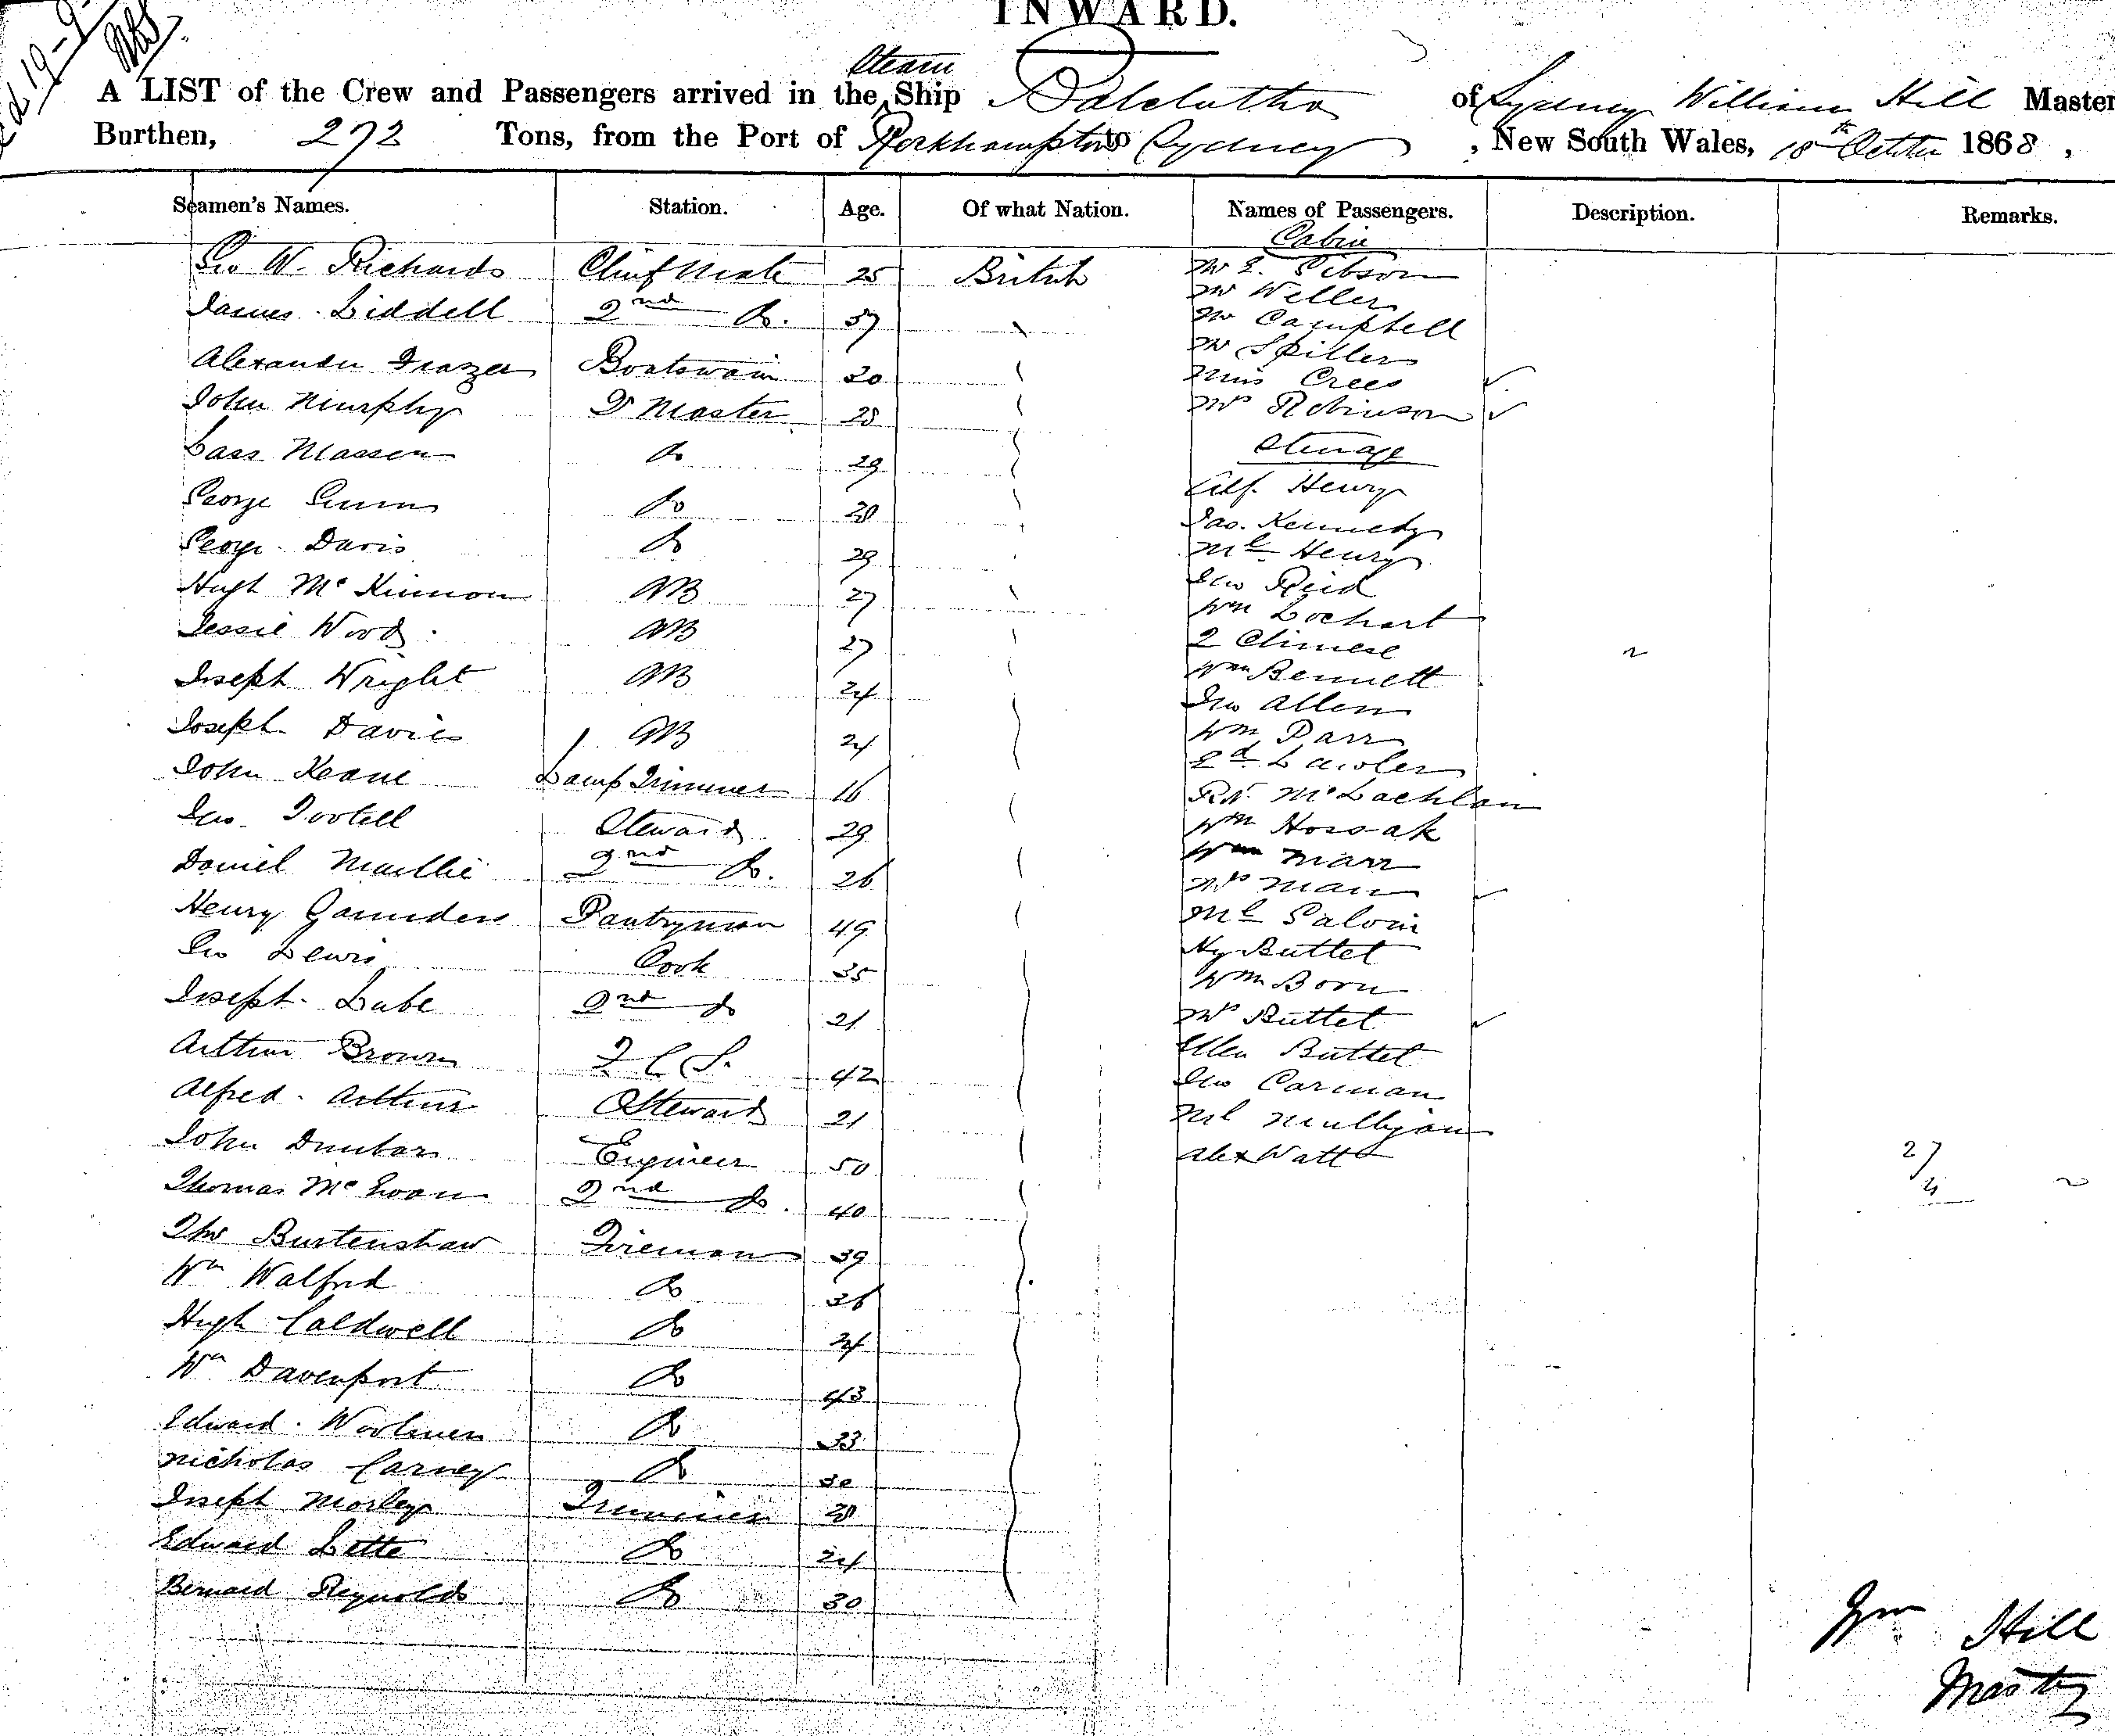 INWARD.
A LIST of the Crew and Passengers arrived in the Steam Ship Balclutha of Sydney William Hill Master
Burthen, 272 Tons, from the Port of Rockhampton to Sydney, New South Wales, 18th October 1868,
Seamen's Names. Station. Age. Of what Nation. Names of Passengers. Description. Remarks.
Cabin
Geo W. Richards Chief Mate 25 British Mr E. Gibson
Mr Weller
James Liddell 2nd Do. 37 Mr Campbell
Mr Spiller
Alexander Frazer Boatswain 30 Miss Crees
John Murphy Qr Master 28 Mrs Robinson
Lass Massen Do 29 Steerage
George Gunn Do 28 Alf. Henry
Jas. Kennedy
George Davis Do 29 Ml Henry
Hugh McKinnon AB 27 Jno Reid
Wm Lochart
Jessie Wood AB 27 2 Chinese
Joseph Wright AB 24 Wm Bennett
Jno Allen
Joseph Davies AB 24 Wm Parr
Ed Lawler
John Keane Lamp Trimmer 16 Rt McLachlan
Jno. Tootell Steward 29 Wm Hossak
Wm Marr
Daniel Maillie 2nd Do. 26 Mrs Marr
Henry Gaunders Pantryman 49 Ml Galvin
Geo Lewis Cook 35 Hy Buttel
Wm Born
Joseph Lube 2nd do 21 Mrs Buttel
Arthur Brown F C S. 42 Ellen Buttel
Jno Carman
Alfred Arthur Steward 21 Ml Mulligan
John Dunbar Engineer 50 Alex Watt 27
Thomas McEwan 2nd do. 40 4
Thos Burtenshaw Fireman 39
Wm Walford Do 36
Hugh Caldwell Do 24
Wm Davenport Do 43
Edward Do 33
Nicholas Carney Do 30
Joseph Morley Trimmer 28
Edward Lette Do 24
Bernard Reynolds Do 30
Wm Hill
Master